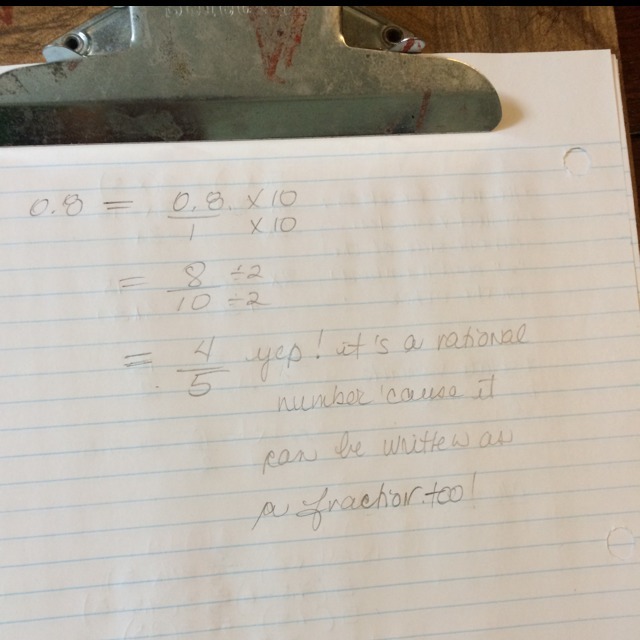 0.8 = 0.8 x10
1 x10
= 8 ÷2
10 ÷2
= 4 yep! it's a rational
5
number 'cause it
can be written as
a fraction too!